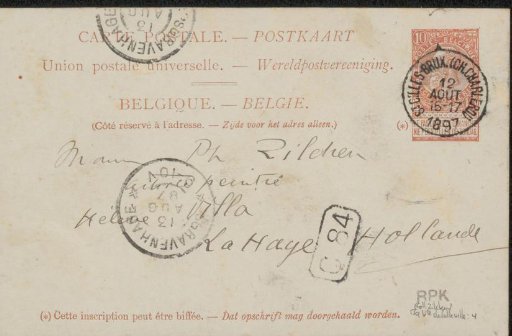 CARTE POSTALE. — POSTKAART
Union postale universelle. — Wereldpostvereeniging.
BELGIQUE. — BELGIE.
(Côté réservé à l'adresse. — Zijde voor het adres alleen.)
(*)
10
ST GILLES-BRUX. (CH. CHARLEROI)
12
AOUT
15-17
1897
'S GRAVENHAGE
13
AUG
'S GRAVENHAGE
13
AUG
97
10V
Ph Zilcken
peintre
Hélène Villa
La Haye Hollande
C 84
RPK
(*) Cette inscription peut être biffée. — Dat opschrift mag doorgehaald worden.